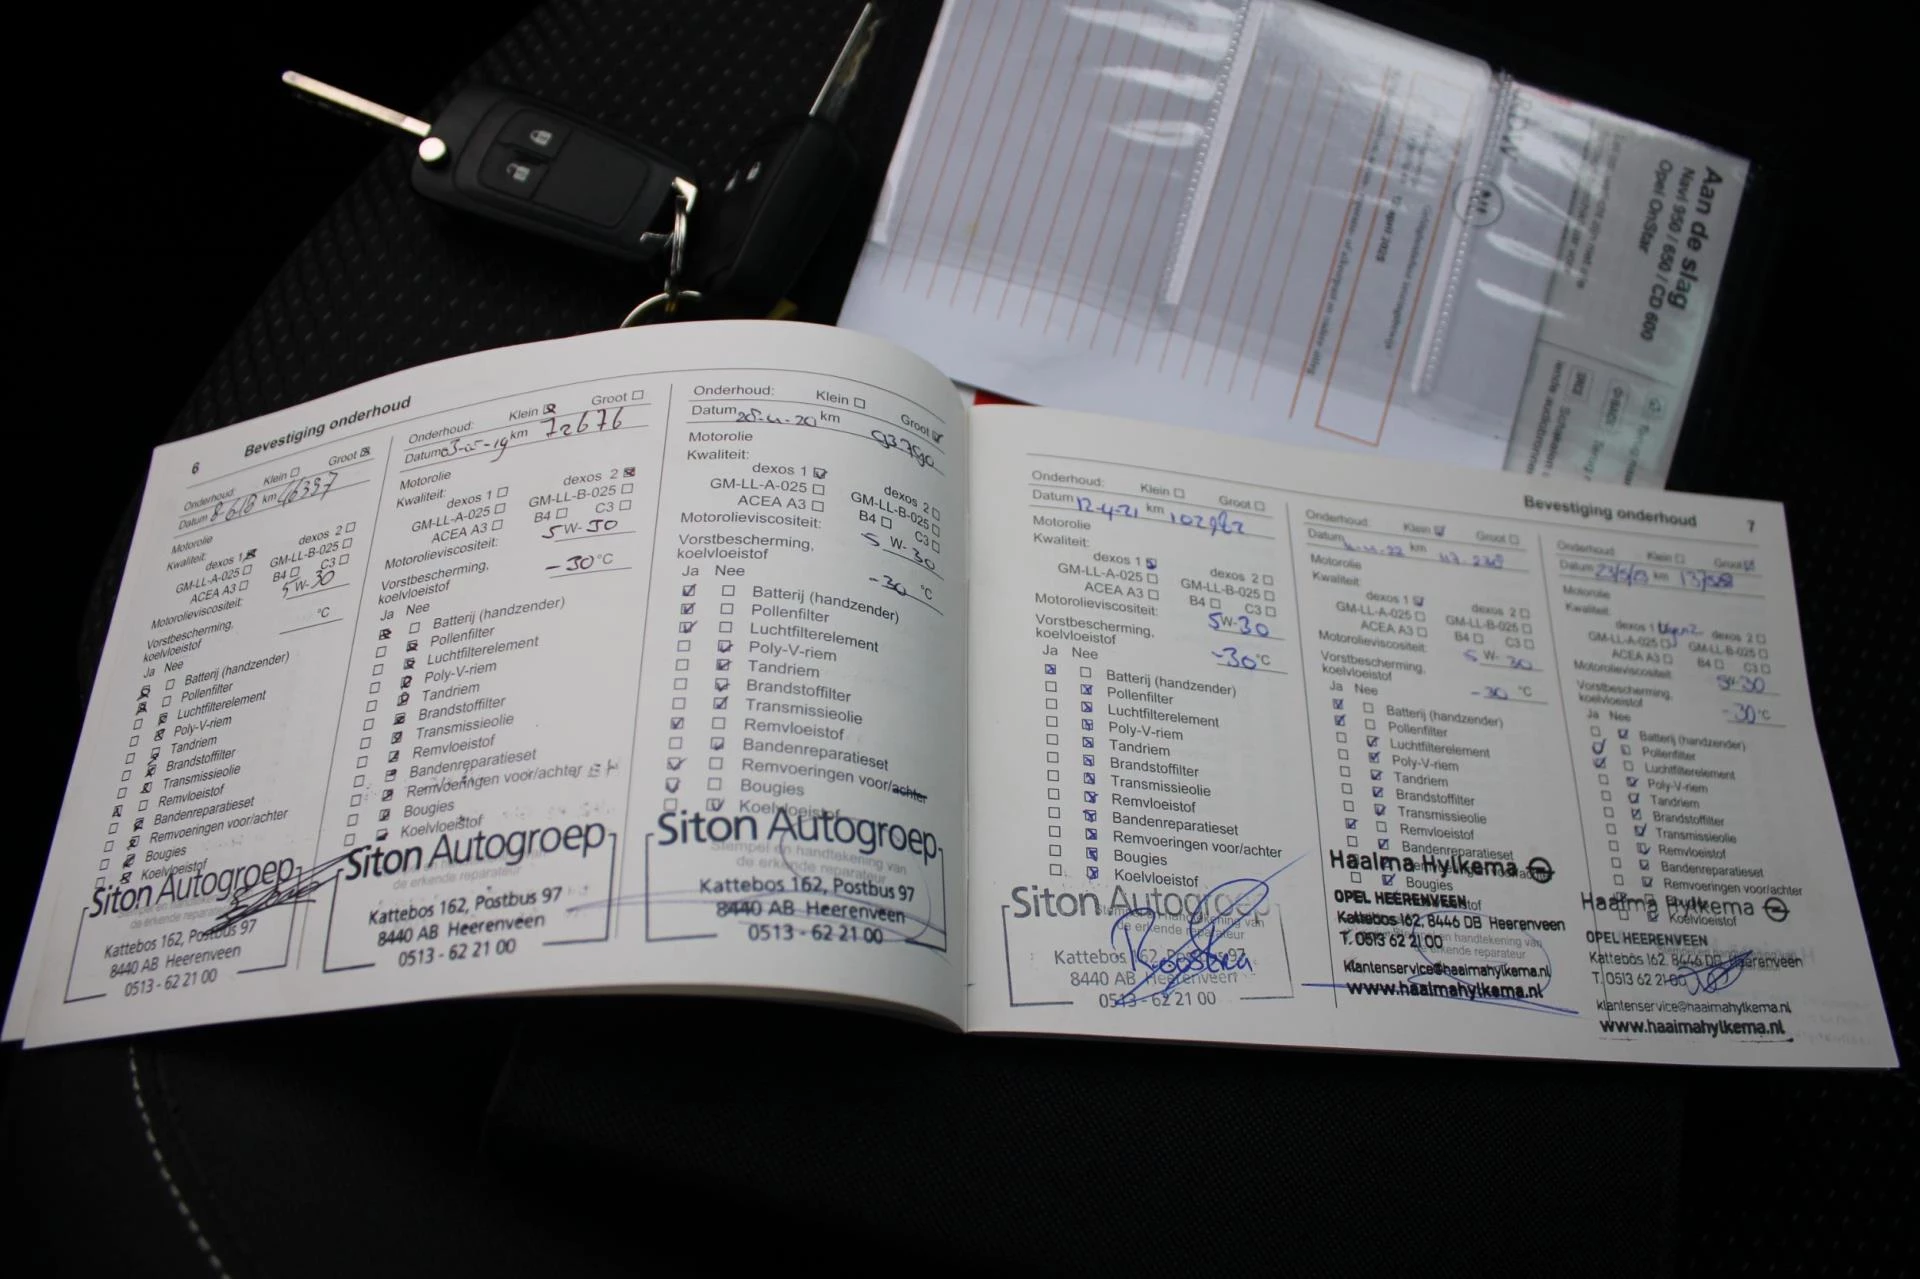 Aan de slag
Navi 950 / 650 / CD 600
Opel OnStar
6
Bevestiging onderhoud
Onderhoud: Klein Groot
Datum 8-6-18 km 46397
Motorolie
Kwaliteit:
dexos 1 dexos 2
GM-LL-A-025 GM-LL-B-025
ACEA A3 B4 C3
Motorolieviscositeit: 5 W-30
Vorstbescherming,
koelvloeistof °C
Ja Nee
Batterij (handzender)
Pollenfilter
Luchtfilterelement
Poly-V-riem
Tandriem
Brandstoffilter
Transmissieolie
Remvloeistof
Bandenreparatieset
Remvoeringen voor/achter
Bougies
Koelvloeistof
Siton Autogroep
Kattebos 162, Postbus 97
8440 AB Heerenveen
0513 - 62 21 00
Onderhoud: Klein Groot
Datum 03-05-19 km 72676
Motorolie
Kwaliteit:
dexos 1 dexos 2
GM-LL-A-025 GM-LL-B-025
ACEA A3 B4 C3
Motorolieviscositeit: 5 W-30
Vorstbescherming,
koelvloeistof -30 °C
Ja Nee
Batterij (handzender)
Pollenfilter
Luchtfilterelement
Poly-V-riem
Tandriem
Brandstoffilter
Transmissieolie
Remvloeistof
Bandenreparatieset
Remvoeringen voor/achter
Bougies
Koelvloeistof
Siton Autogroep
de erkende reparateur
Kattebos 162, Postbus 97
8440 AB Heerenveen
0513 - 62 21 00
Onderhoud: Klein Groot
Datum km
Motorolie
Kwaliteit:
dexos 1 dexos 2
GM-LL-A-025 GM-LL-B-025
ACEA A3 B4 C3
Motorolieviscositeit: 5 W-30
Vorstbescherming,
koelvloeistof -30 °C
Ja Nee
Batterij (handzender)
Pollenfilter
Luchtfilterelement
Poly-V-riem
Tandriem
Brandstoffilter
Transmissieolie
Remvloeistof
Bandenreparatieset
Remvoeringen voor/achter
Bougies
Koelvloeistof
Siton Autogroep
Stempel en handtekening van
de erkende reparateur
Kattebos 162, Postbus 97
8440 AB Heerenveen
0513 - 62 21 00
Bevestiging onderhoud
7
Onderhoud: Klein Groot
Datum 12-4-21 km 102982
Motorolie
Kwaliteit:
dexos 1 dexos 2
GM-LL-A-025 GM-LL-B-025
ACEA A3 B4 C3
Motorolieviscositeit: 5W-30
Vorstbescherming,
koelvloeistof -30 °C
Ja Nee
Batterij (handzender)
Pollenfilter
Luchtfilterelement
Poly-V-riem
Tandriem
Brandstoffilter
Transmissieolie
Remvloeistof
Bandenreparatieset
Remvoeringen voor/achter
Bougies
Koelvloeistof
Siton Autogroep
Kattebos 162, Postbus 97
8440 AB Heerenveen
0513 - 62 21 00
Onderhoud: Klein Groot
Datum km
Motorolie
Kwaliteit:
dexos 1 dexos 2
GM-LL-A-025 GM-LL-B-025
ACEA A3 B4 C3
Motorolieviscositeit: 5 W-30
Vorstbescherming,
koelvloeistof -30 °C
Ja Nee
Batterij (handzender)
Pollenfilter
Luchtfilterelement
Poly-V-riem
Tandriem
Brandstoffilter
Transmissieolie
Remvloeistof
Bandenreparatieset
Bougies
Haaima Hylkema
OPEL HEERENVEEN
Kattebos 162, 8446 DB Heerenveen
T. 0513 62 21 00
klantenservice@haaimahylkema.nl
www.haaimahylkema.nl
Onderhoud: Klein Groot
Datum km
Motorolie
Kwaliteit:
dexos 1 dexos 2
GM-LL-A-025 GM-LL-B-025
ACEA A3 B4 C3
Motorolieviscositeit: 5W-30
Vorstbescherming,
koelvloeistof -30 °C
Ja Nee
Batterij (handzender)
Pollenfilter
Luchtfilterelement
Poly-V-riem
Tandriem
Brandstoffilter
Transmissieolie
Remvloeistof
Bandenreparatieset
Remvoeringen voor/achter
Koelvloeistof
Haaima Hylkema
OPEL HEERENVEEN
Kattebos 162, 8446 DB Heerenveen
T. 0513 62 21 00
klantenservice@haaimahylkema.nl
www.haaimahylkema.nl